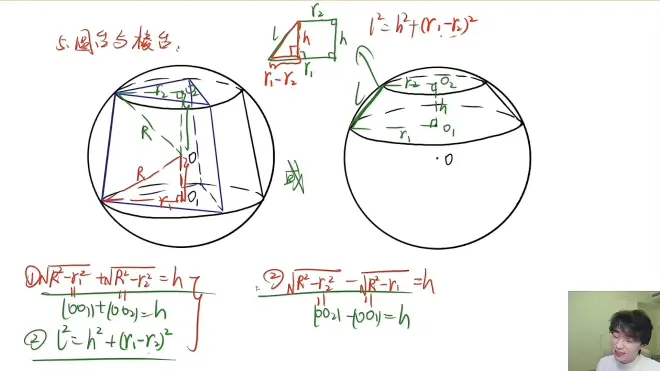 5. 圆台与棱台.
r₂
l
h
h
r₁
r₁-r₂
l²=h²+(r₁-r₂)²
r₂
O₂
R
R
O
r₁
O₁
或
l
r₂
O₂
h
r₁
O₁
O
① √R²-r₁² + √R²-r₂² = h
|OO₁|+|OO₂|=h
② l²=h²+(r₁-r₂)²
② √R²-r₂² - √R²-r₁ = h
|OO₂|-|OO₁|=h